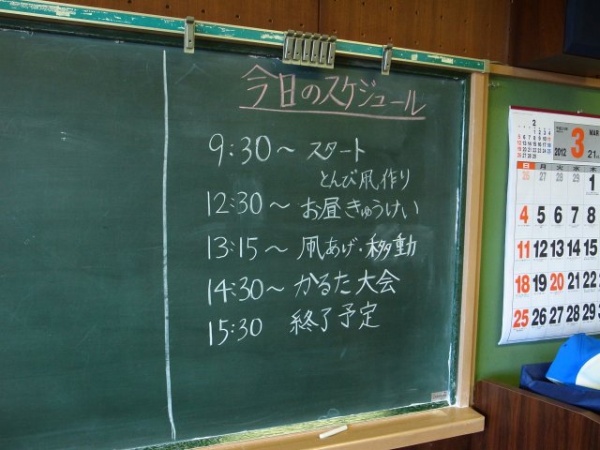 今日のスケジュール
9:30〜 スタート
とんび凧作り
12:30〜 お昼きゅうけい
13:15〜 凧あげ・移動
14:30〜 かるた大会
15:30 終了予定
2012 3 MAR.
日 月 火 水 木
26 27 28 29 1
4 5 6 7 8
11 12 13 14 15
18 19 20 21 22
25 26 27 28 29